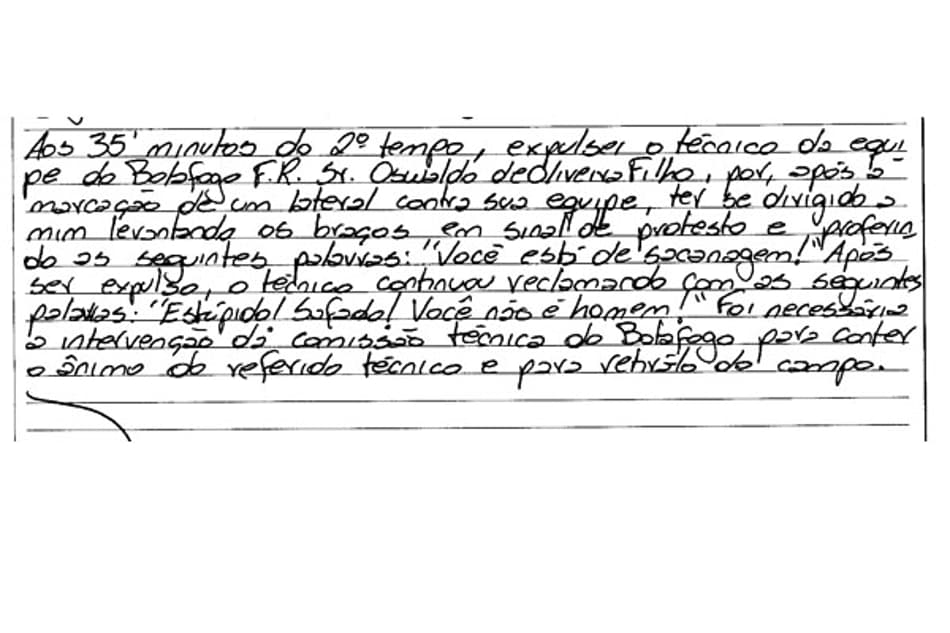 Aos 35' minutos do 2º tempo, expulsei o técnico da equi
pe do Botafogo F.R. Sr. Oswaldo de Oliveira Filho, por, após a
marcação de um lateral contra sua equipe, ter se dirigido a
mim levantando os braços em sinal de protesto e proferin
do as seguintes palavras: "Você está de sacanagem!" Após
ser expulso, o técnico continuou reclamando com as seguintes
palavras: "Estúpido! Safado! Você não é homem!" Foi necessária
a intervenção da comissão técnica do Botafogo para conter
o ânimo do referido técnico e para retirá-lo do campo.